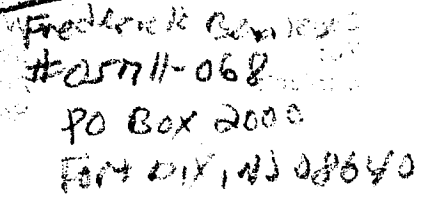 Frederick Banks
#05711-068
PO Box 2000
Fort Dix, NJ 08640